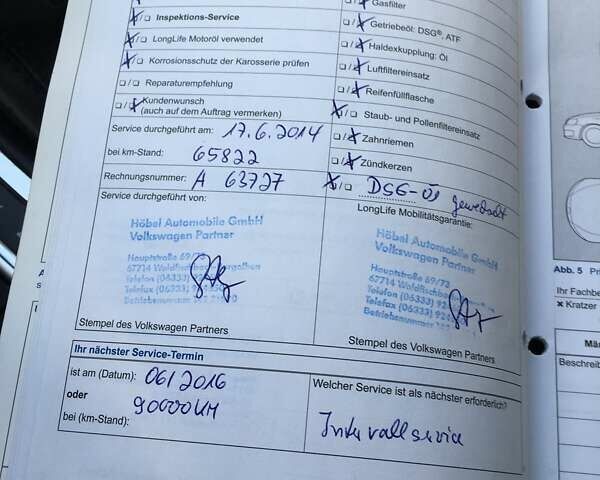 Inspektions-Service
LongLife Motoröl verwendet
Korrosionsschutz der Karosserie prüfen
Reparaturempfehlung
Kundenwunsch
(auch auf dem Auftrag vermerken)
Gasfilter
Getriebeöl: DSG®, ATF
Haldexkupplung: Öl
Luftfiltereinsatz
Reifenfüllflasche
Staub- und Pollenfiltereinsatz
Zahnriemen
Zündkerzen
DSG-Öl gewechselt
Service durchgeführt am: 17.6.2014
bei km-Stand: 65822
Rechnungsnummer: A 63727
Service durchgeführt von:
Höbel Automobile GmbH
Volkswagen Partner
Hauptstraße 69/73
67714 Waldfischbach-Burgalben
Telefon (06333) 92
Telefax (06333) 92
Betriebsnummer
Stempel des Volkswagen Partners
LongLife Mobilitätsgarantie:
Höbel Automobile GmbH
Volkswagen Partner
Hauptstraße 69/73
67714 Waldfischbach
Telefon (06333) 92
Telefax (06333) 92
Betriebsnummer
Stempel des Volkswagen Partners
Ihr nächster Service-Termin
ist am (Datum): 06/2016
oder
bei (km-Stand): 90000KM
Welcher Service ist als nächster erforderlich?
Intervallservice
Abb. 5
Ihr Fachbe
Kratzer
Män
Beschreib